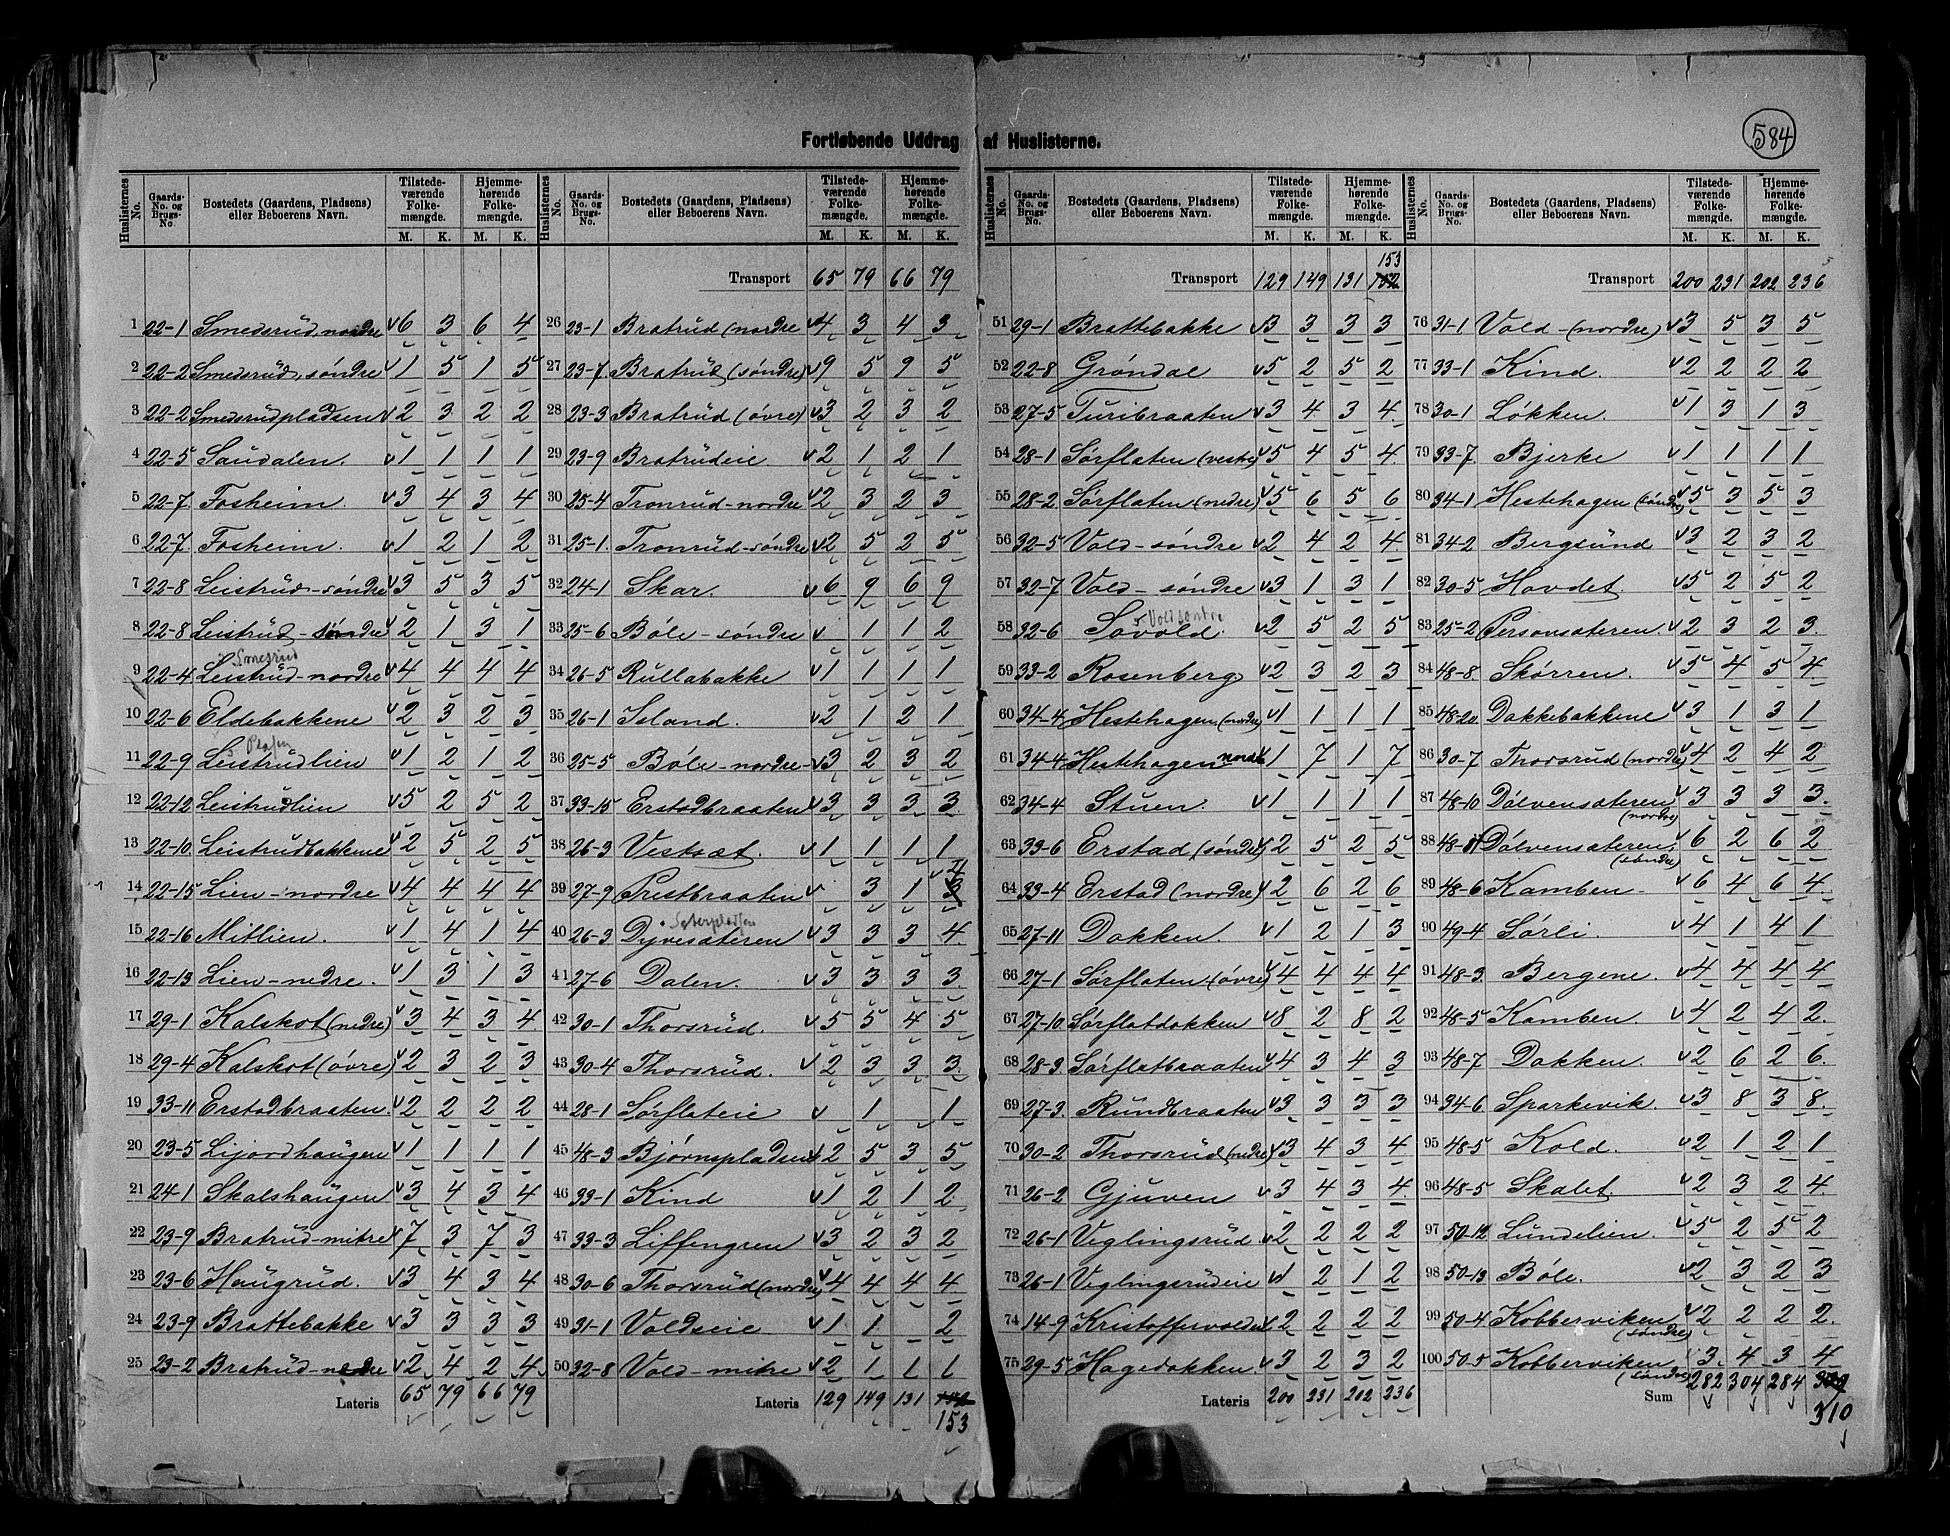 584
Fortløbende Uddrag af Huslisterne.
Huslisternes No. Gaards-No. og Brugs-No. Bostedets (Gaardens, Pladsens) eller Beboerens Navn. Tilstedeværende Folkemængde. M. K. Hjemmehørende Folkemængde. M. K.
1 22-1 Smedsrud, nordre 6 3 6 4
2 22-2 Smedsrud, søndre 1 5 1 5
3 22-2 Smedsrudpladsen 2 3 2 2
4 22-5 Saudalen. 1 1 1 1
5 22-7 Fosheim 3 4 3 4
6 22-7 Fosheim. 1 2 1 2
7 22-8 Leistrud-søndre 3 5 3 5
8 22-8 Leistrud-søndre 2 1 3 1
Smesrud
9 22-4 Leistrud-nordre 4 4 4 4
10 22-6 Eldebakkene 2 3 2 3
11 22-9 Leistrudlien 1 2 1 2
12 22-12 Leistrudlien 5 2 5 2
13 22-10 Leistrudbakkene 2 5 2 5
14 22-15 Lien-nordre 4 4 4 4
15 22-16 Mitlien. 1 4 1 4
16 22-13 Lien-nedre. 1 3 1 3
17 29-1 Kalskot (nedre) 3 4 3 4
18 29-4 Kalskot (øvre) 2 3 2 3
19 33-11 Erstadbraaten. 2 2 2 2
20 23-5 Lijordhaugen 1 1 1 1
21 24-1 Skalshaugen 3 4 3 4
22 23-9 Bratrud-mitre 7 3 7 3
23 23-6 Haugrud. 3 4 3 4
24 23-9 Brattebakke 3 3 3 3
25 23-2 Bratrud-nedre 2 4 2 4
Lateris 65 79 66 79
Transport 65 79 66 79
26 23-1 Bratrud (nordre 4 3 4 3
27 23-7 Bratrud (søndre) 9 5 9 5
28 23-3 Bratrud (øvre) 3 2 3 2
29 23-9 Bratrudeie 2 1 2 1
30 25-4 Tronrud-nordre 2 3 2 3
31 25-1 Tronrud-søndre 2 5 2 5
32 24-1 Skar. 6 9 6 9
33 25-6 Bøle-søndre 1 1 2
34 26-5 Rullabakke 1 1 1 1
35 26-1 Island. 2 1 2 1
36 25-5 Bøle-nordre 3 2 3 2
37 33-15 Erstadbraaten 3 3 3 3
38 26-3 Vestsæt. 1 1 1 1
39 27-9 Prestbraaten 3 1 4
Seterpladsen
40 26-3 Dyvesæteren 3 3 3 4
41 27-6 Dalen. 3 3 3 3
42 30-1 Thorsrud. 5 5 4 5
43 30-4 Thorsrud. 2 3 3 3
44 28-1 Sørflateie 1 1
45 48-3 Bjørnspladsen 2 5 3 5
46 33-1 Kind 1 2 1 2
47 33-3 Liffengren 3 2 3 2
48 30-6 Thorsrud (nordre) 4 4 4 4
49 31-1 Voldseie 1 1 2
50 32-8 Vold-mitre 2 1 1 1
Lateris 129 149 131 152
153
153
Transport 129 149 131 152
51 29-1 Brattebakke 3 3 3 3
52 22-8 Grøndal 5 2 5 2
53 27-5 Turibraaten 3 4 3 4
54 28-1 Sørflaten (vestre) 5 4 5 4
55 28-2 Sørflaten (nedre) 5 6 5 6
56 32-5 Vold-søndre 2 4 2 4
57 32-7 Vold-søndre 3 1 3 1
Vold søndre
58 32-6 Søvold. 2 5 2 5
59 33-2 Rosenberg 2 3 2 3
60 34-4 Hestehagen (nordre) 1 1 1 1
61 34-4 Hestehagen nordre 1 7 1 7
62 34-4 Stuen. 1 1 1 1
63 33-6 Erstad (søndre) 2 5 2 5
64 33-4 Erstad (nordre) 2 6 2 6
65 27-11 Dokken. 1 2 1 3
66 27-1 Sørflaten (øvre) 4 4 4 4
67 27-10 Sørflatdokken 8 2 8 2
68 28-3 Sørflatbraaten 4 3 4 3
69 27-3 Rundbraaten 3 3 3 3
70 30-2 Thorsrud (nedre) 3 4 3 4
71 26-2 Gjuven 3 4 3 4
72 26-1 Veglingsrud 2 2 2 2
73 26-1 Veglingsrudeie 1 2 1 2
74 14-9 Kristoffervolden 2 2 2 2
75 29-5 Hagedokken. 3 2 3 2
Lateris 200 231 202 236
Transport 200 231 202 236
76 31-1 Vold-(nordre) 3 5 3 5
77 33-1 Kind. 2 2 2 2
78 30-1 Løkken. 1 3 1 3
79 33-7 Bjerke 1 1 1 1
80 34-1 Hestehagen (søndre) 5 3 5 3
81 34-2 Bergsund 3 2 3 2
82 30-5 Hovdet. 5 2 5 2
83 25-2 Personsæteren. 2 3 2 3
84 48-8 Skørren. 5 4 5 4
85 48-20 Dokkebakkene 3 1 3 1
86 30-7 Thorsrud (nordre) 4 2 4 2
87 48-10 Dølvensæteren (nordre) 3 3 3 3
88 Dølvensæteren, (søndre) 6 2 6 2
89 48-6 Kamben- 6 4 6 4
90 49-4 Sørli. 4 1 4 1
91 48-3 Bergene. 4 4 4 4
92 48-5 Kamben. 4 2 4 2
93 48-7 Dokken. 2 6 2 6
94 34-6 Sparkevik. 3 8 3 8
95 48-5 Kold. 2 1 2 1
96 48-5 Skalet. 2 3 2 4
97 50-12 Lundelien. 5 2 5 2
98 50-13 Bøle. 2 3 2 3
99 50-4 Kobberviken (søndre) 2 2 2 2
100 50-5 Kobberviken (søndre) 3 4 3 4
Sum 282 304 284 309
310